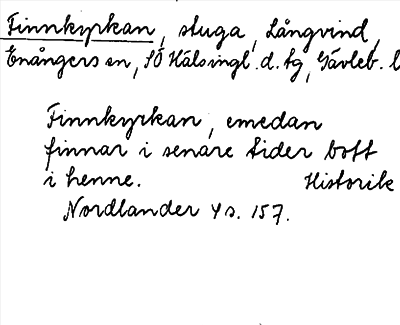 Finnkyrkan, stuga, Långvind,
Enångers sn, SÖ Hälsingl. d. tg, Gävleb. l
Finnkyrkan, emedan
finnar i senare tider bott
i henne. Historik
Nordlander 4 s. 157.